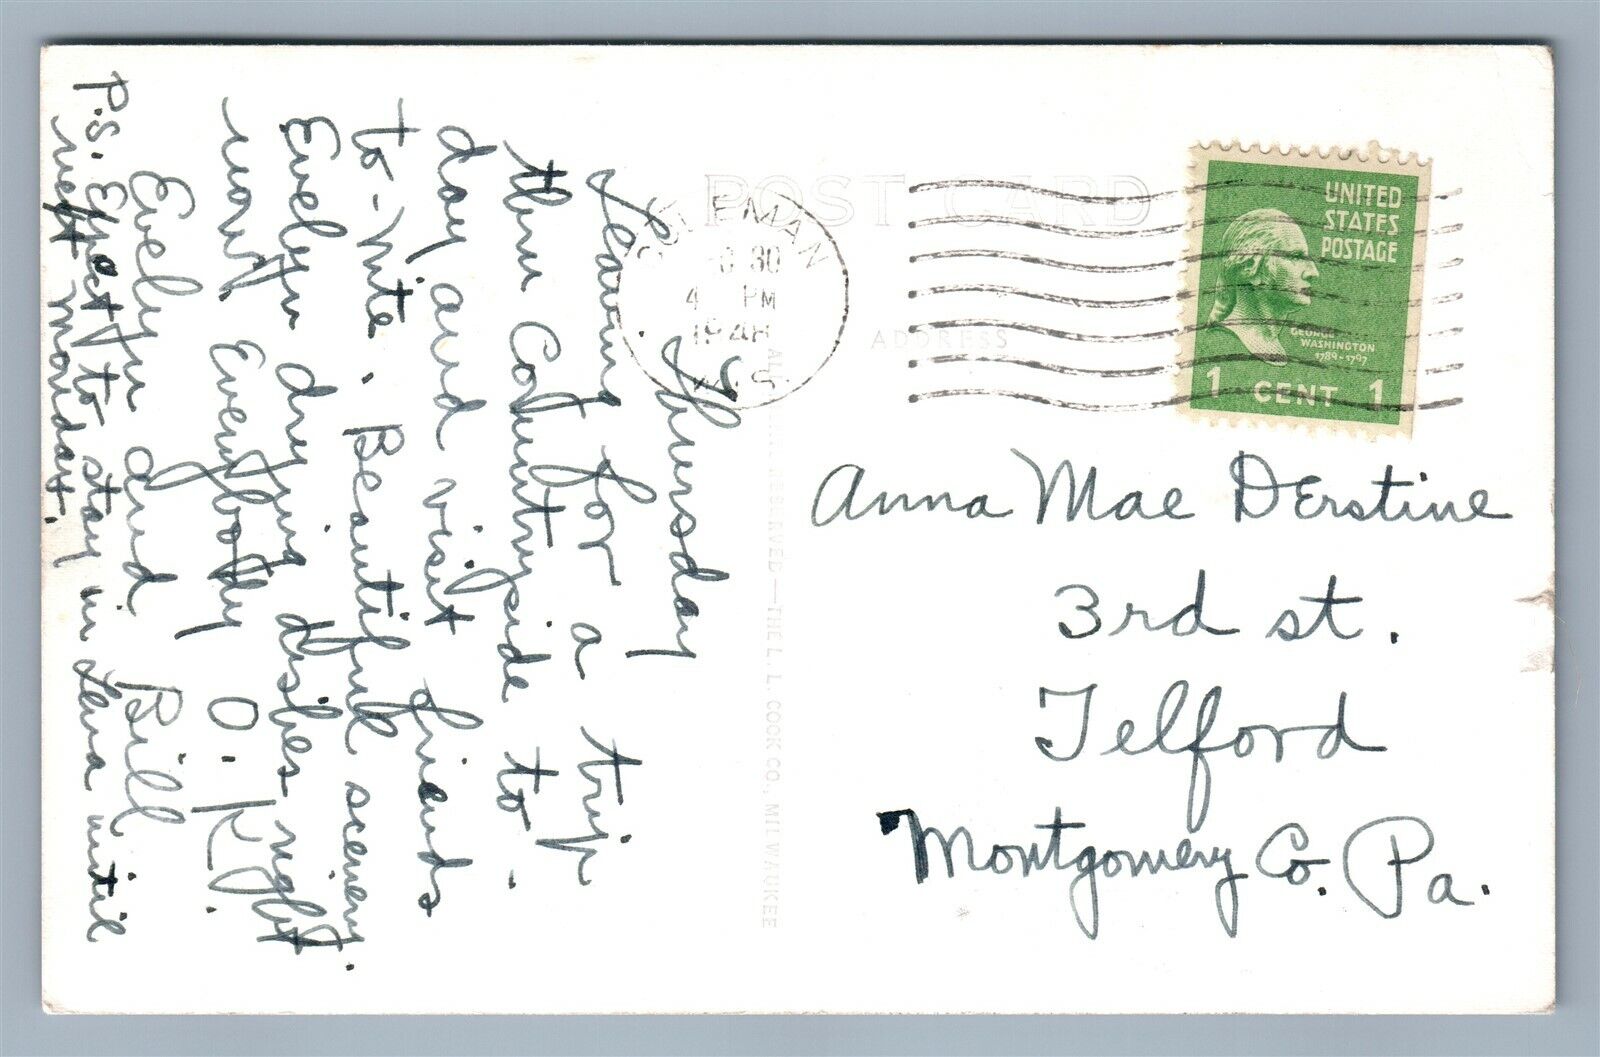 POST CARD
ADDRESS
COLEMAN
30
4 PM
1948
WIS.
UNITED
STATES
POSTAGE
GEORGE
WASHINGTON
1789-1797
1 CENT 1
Anna Mae Derstine
3rd st.
Telford
Montgomery Co. Pa.
RESERVED—THE L. L. COOK CO., MILWAUKEE
Thursday
Leaving for a trip
thru Countryside to-
day and visit friends
to-nite. Beautiful scenery.
Evelyn drying dishes right
now. Everybody O.K.
Evelyn and Bill
P.S. Expect to stay in Lena until
next Monday.